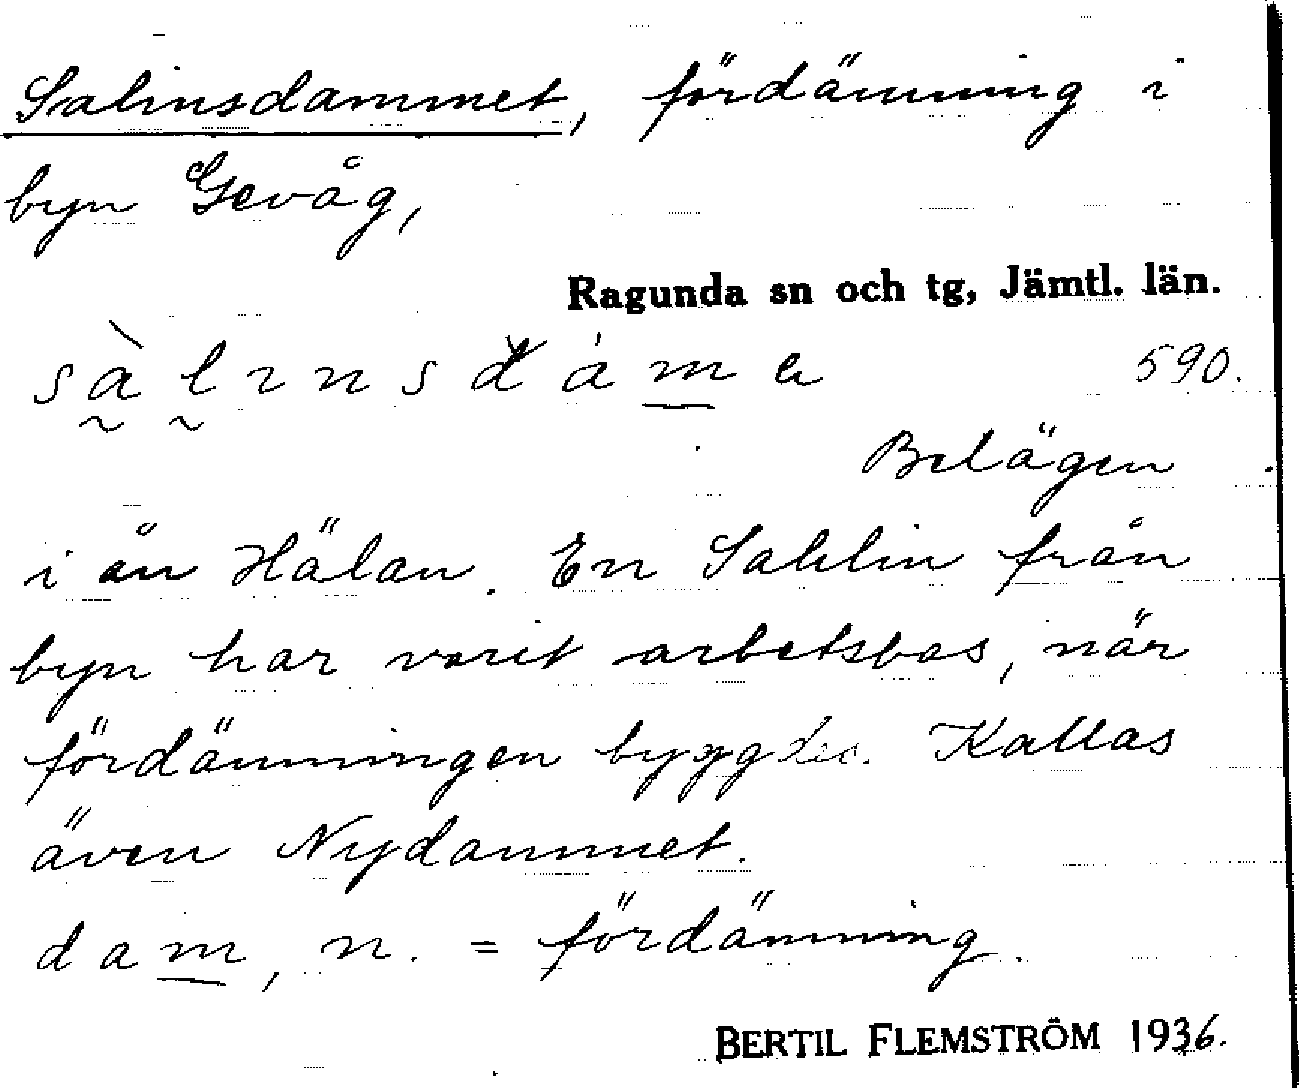 Salinsdammet, fördämning i
byn Gevåg,
Ragunda sn och tg, Jämtl. län.
sàlınsdáme 590.
Belägen
i ån Hälan. En Sahlin från
byn har varit arbetsbas, när
fördämningen byggdes. Kallas
även Nydammet.
dam, n. = fördämning.
BERTIL FLEMSTRÖM 1936.